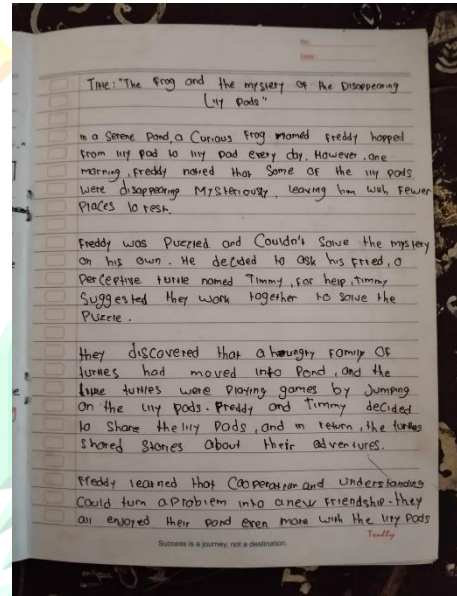 No.
Date
Title: "The Frog and the mystery of the Disappearing
Lily Pads"
In a Serene Pond, a Curious Frog named Freddy hopped
from lily pad to lily pad every day. However, one
morning, Freddy noticed that Some of the lily pads
were disappearing MYSteriously, leaving him with Fewer
Places to rest.
Freddy was Puzzled and Couldn't Solve the mystery
on his own. He decided to ask his Fried, a
Perceptive turtle named Timmy, for help. Timmy
Suggested they work together to solve the
Puzzle.
they discovered that a houngry Family Of
turtles had moved into Pond, and the
turtles were Playing games by Jumping
on the lily Pads. Freddy and Timmy decided
to Share the lily Pads, and in return, the turtles
shared Stories about their adventures.
Freddy learned that Cooperation and Understanding
Could turn a Problem into a new Friendship. they
all enjoyed their Pond even more with the lily Pads
Success is a journey, not a destination.